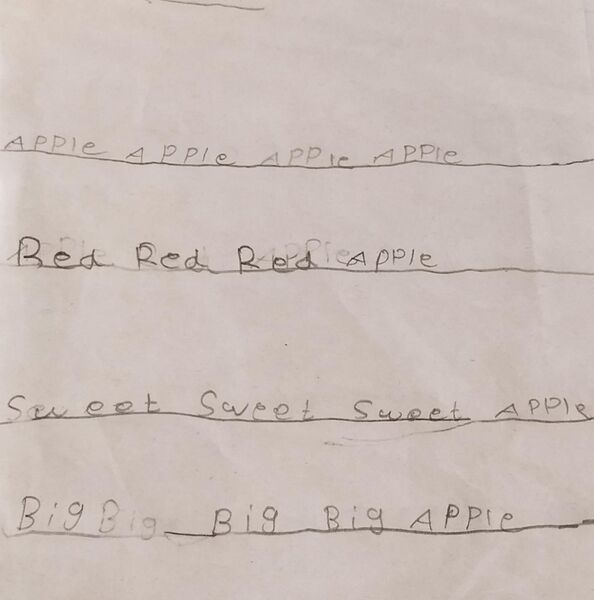 APPle APPle APPle APPle
Red Red Red APPle
Sweet Sweet Sweet APPle
Big Big Big Big APPle